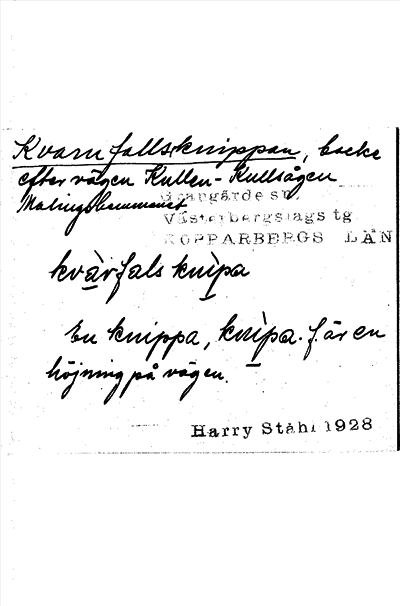 Kvarnfallsknippan, backe
efter vägen Kullen-Kullsågen
Malingsbommenet
Grangärde sn.
Västerbergslags tg
KOPPARBERGS LÄN
kvàrfals knìpa
En knippa, knìpa f. är en
höjning på vägen.
Harry Ståhl 1928